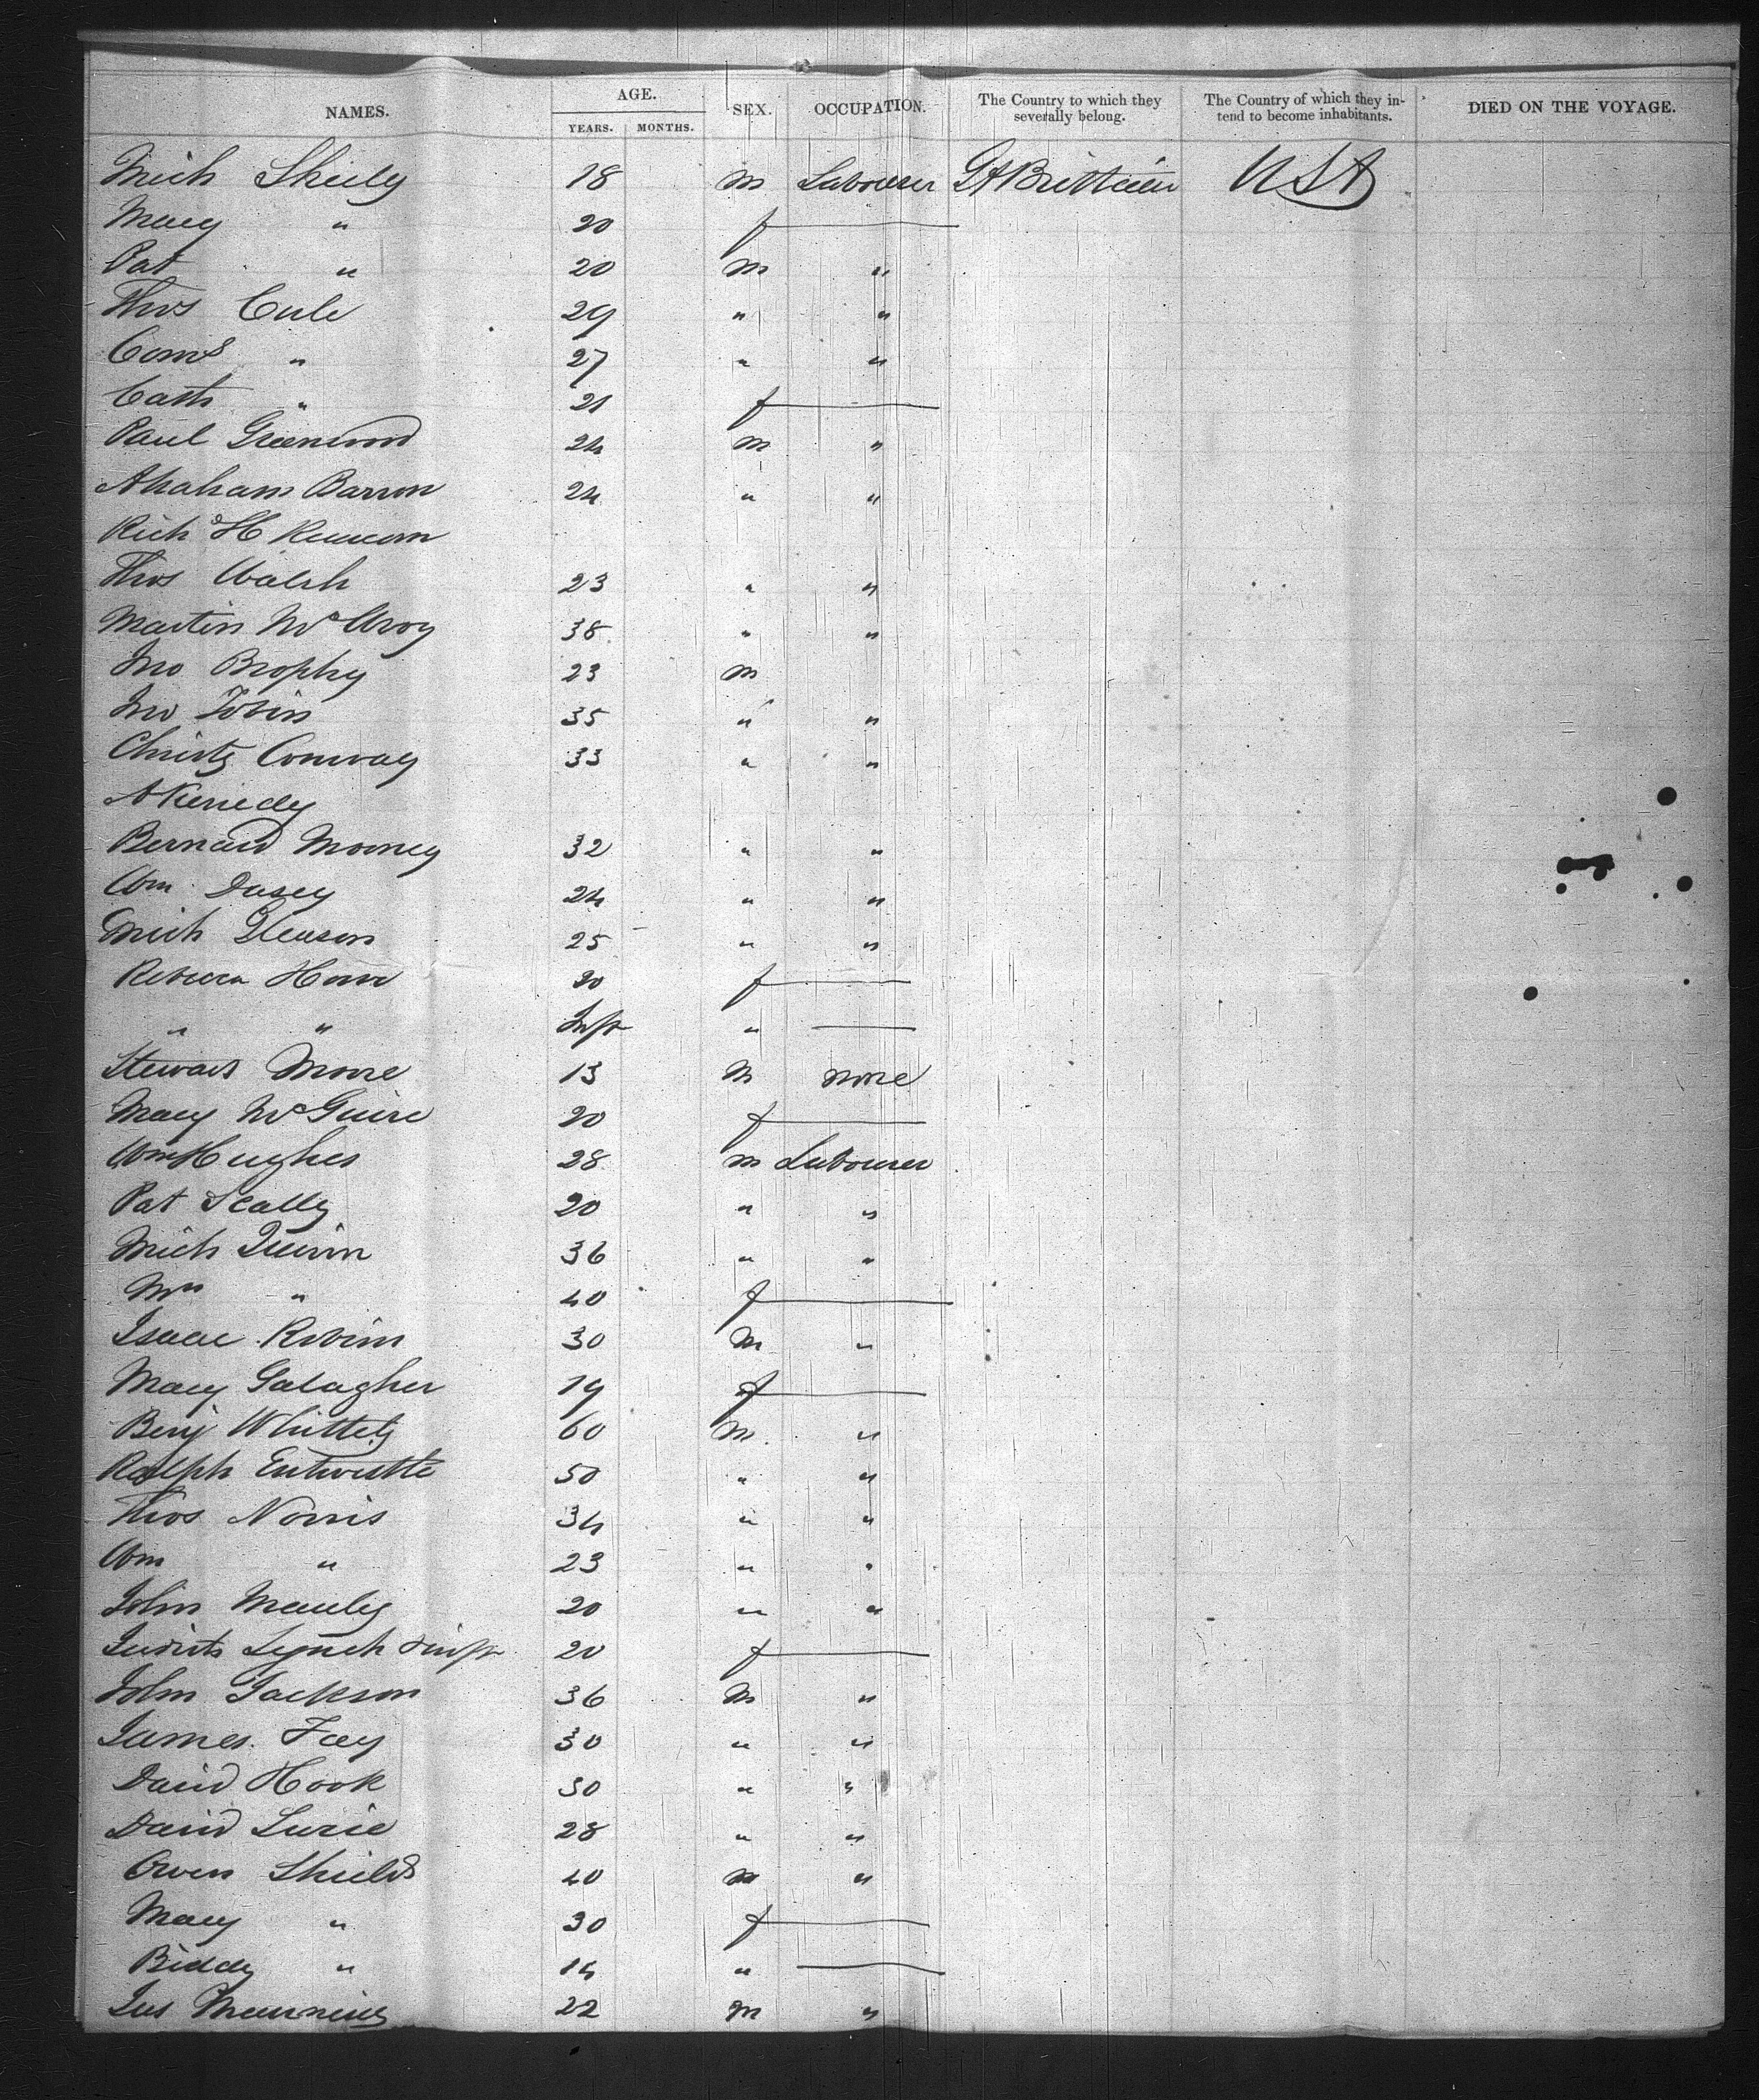 NAMES. AGE. YEARS. MONTHS. SEX. OCCUPATION. The Country to which they severally belong. The Country of which they intend to become inhabitants. DIED ON THE VOYAGE.
Mich Skeily 18 m Labourer Gt Brittain USA
Mary " 20 f
Pat " 20 m "
Thos Cule 29 " "
" 27 " "
Cath " 21 f
Paul Greenwood 24 m "
Abraham Barron 24 " "
Richd H
Thos Walsh 23 " "
Martin McAvoy 38 " "
Jno Brophy 23 m
Jno Tobin 35 " "
Christy Conway 33 " "
A Kenedy
Bernard Mooney 32 " "
Wm Dasey 24 " "
Mich Gleason 25 " "
Rebecca Howe 20 f
" " Inft "
Steward Moore 13 m none
Mary McGuire 20 f
Wm Hughes 28 m Labourer
Pat Scally 20 " "
Mich Quinn 36 " "
Mrs " 40 f
Isaac Robins 30 m "
Mary Galagher 19 f
Benj Whittely 60 m "
Ralph Entwistle 50 " "
Thos Norris 34 " "
Wm " 23 " "
John Manly 20 " "
Judith Lynch & inft 20 f
John Jackson 36 m "
James Fay 30 " "
David Hook 30 " "
David Lurie 28 " "
Owen Shields 40 m "
Mary " 30 f
Biddy " 14 "
Jas Manning 22 m "